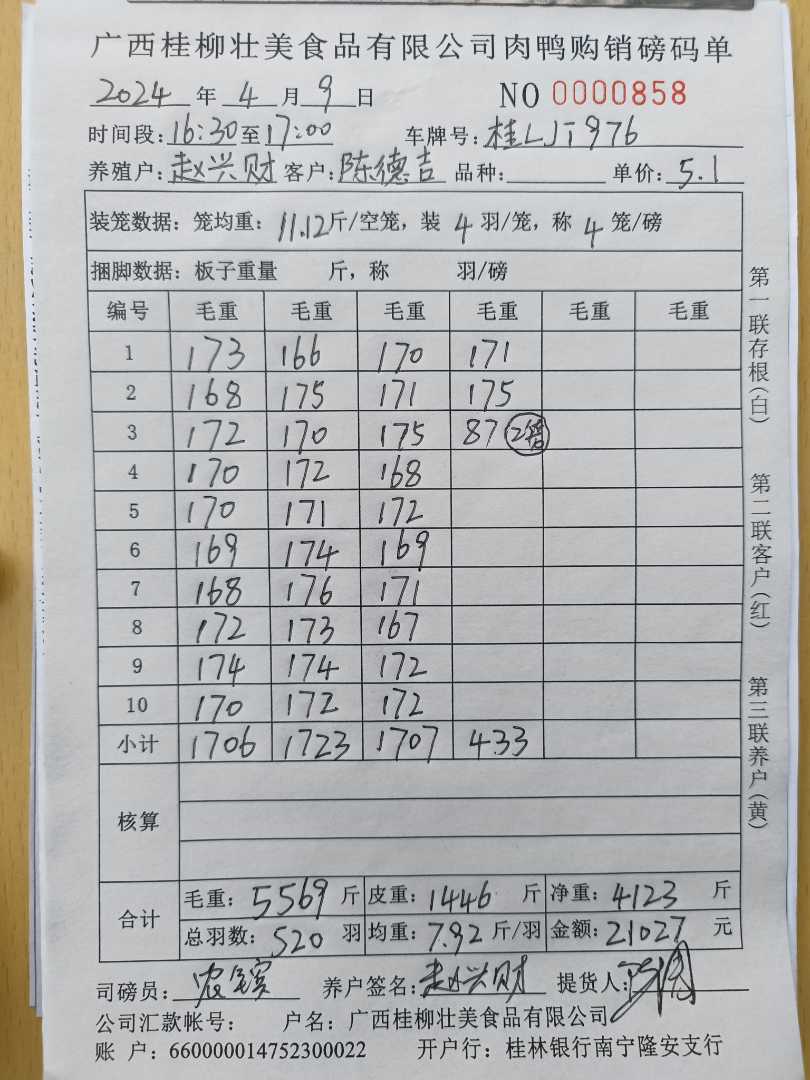 广西桂柳壮美食品有限公司肉鸭购销磅码单
2024 年 4 月 9 日 NO 0000858
时间段: 16:30 至 17:00 车牌号: 桂LJT976
养殖户: 赵兴财 客户: 陈德吉 品种: 单价: 5.1
装笼数据: 笼均重: 11.12 斤/空笼, 装 4 羽/笼, 称 4 笼/磅
捆脚数据: 板子重量 斤, 称 羽/磅
编号 毛重 毛重 毛重 毛重 毛重 毛重
1 173 166 170 171
2 168 175 171 175
3 172 170 175 87 2笼
4 170 172 168
5 170 171 172
6 169 174 169
7 168 176 171
8 172 173 167
9 174 174 172
10 170 172 172
小计 1706 1723 1707 433
核算
合计 毛重: 5569 斤 皮重: 1446 斤 净重: 4123 斤
总羽数: 520 羽 均重: 7.92 斤/羽 金额: 21027 元
司磅员: 养户签名: 赵兴财 提货人:
公司汇款帐号: 户名: 广西桂柳壮美食品有限公司
账 户: 660000014752300022 开户行: 桂林银行南宁隆安支行
第一联存根(白)
第二联客户(红)
第三联养户(黄)